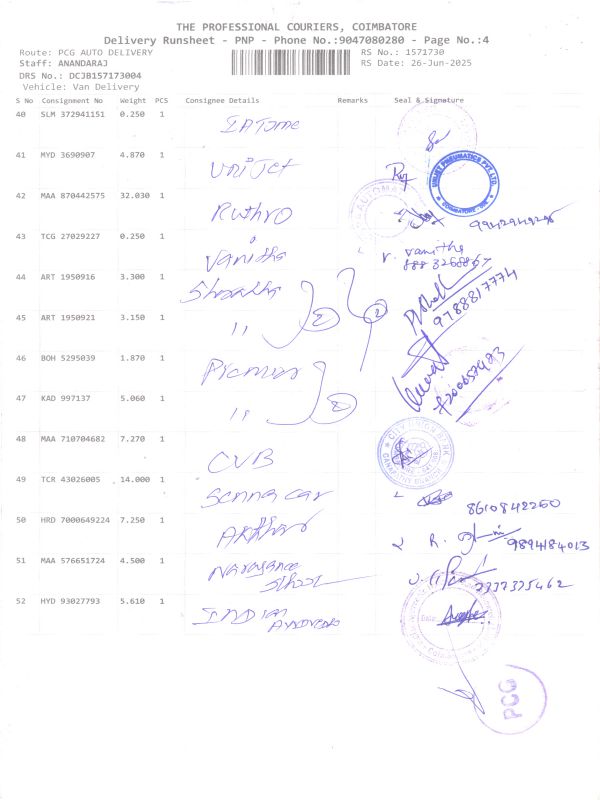 THE PROFESSIONAL COURIERS, COIMBATORE
Delivery Runsheet - PNP - Phone No.:9047080280 - Page No.:4
Route: PCG AUTO DELIVERY RS No.: 1571730
Staff: ANANDARAJ RS Date: 26-Jun-2025
DRS No.: DCJB157173004
Vehicle: Van Delivery
S No Consignment No Weight PCS Consignee Details Remarks Seal & Signature
40 SLM 372941151 0.250 1
41 MYD 3690907 4.870 1 UNiJet
UNIJET PNEUMATICS PVT. LTD. COIMBATORE
42 MAA 870442575 32.030 1 Ruthro
43 TCG 27029227 0.250 1 Vanitha V. Vanitha
44 ART 1950916 3.300 1
9788817774
45 ART 1950921 3.150 1 11 2 2
46 BOH 5295039 1.870 1
47 KAD 997137 5.060 1 11 2
48 MAA 710704682 7.270 1 CUB
CITY UNION BANK GANAPATHY BRANCH
49 TCR 43026005 14.000 1 car
8610842260
50 HRD 7000649224 7.250 1 R.
9894184013
51 MAA 576651724 4.500 1 School
7337375462
52 HYD 93027793 5.610 1 INDIAN
PCG